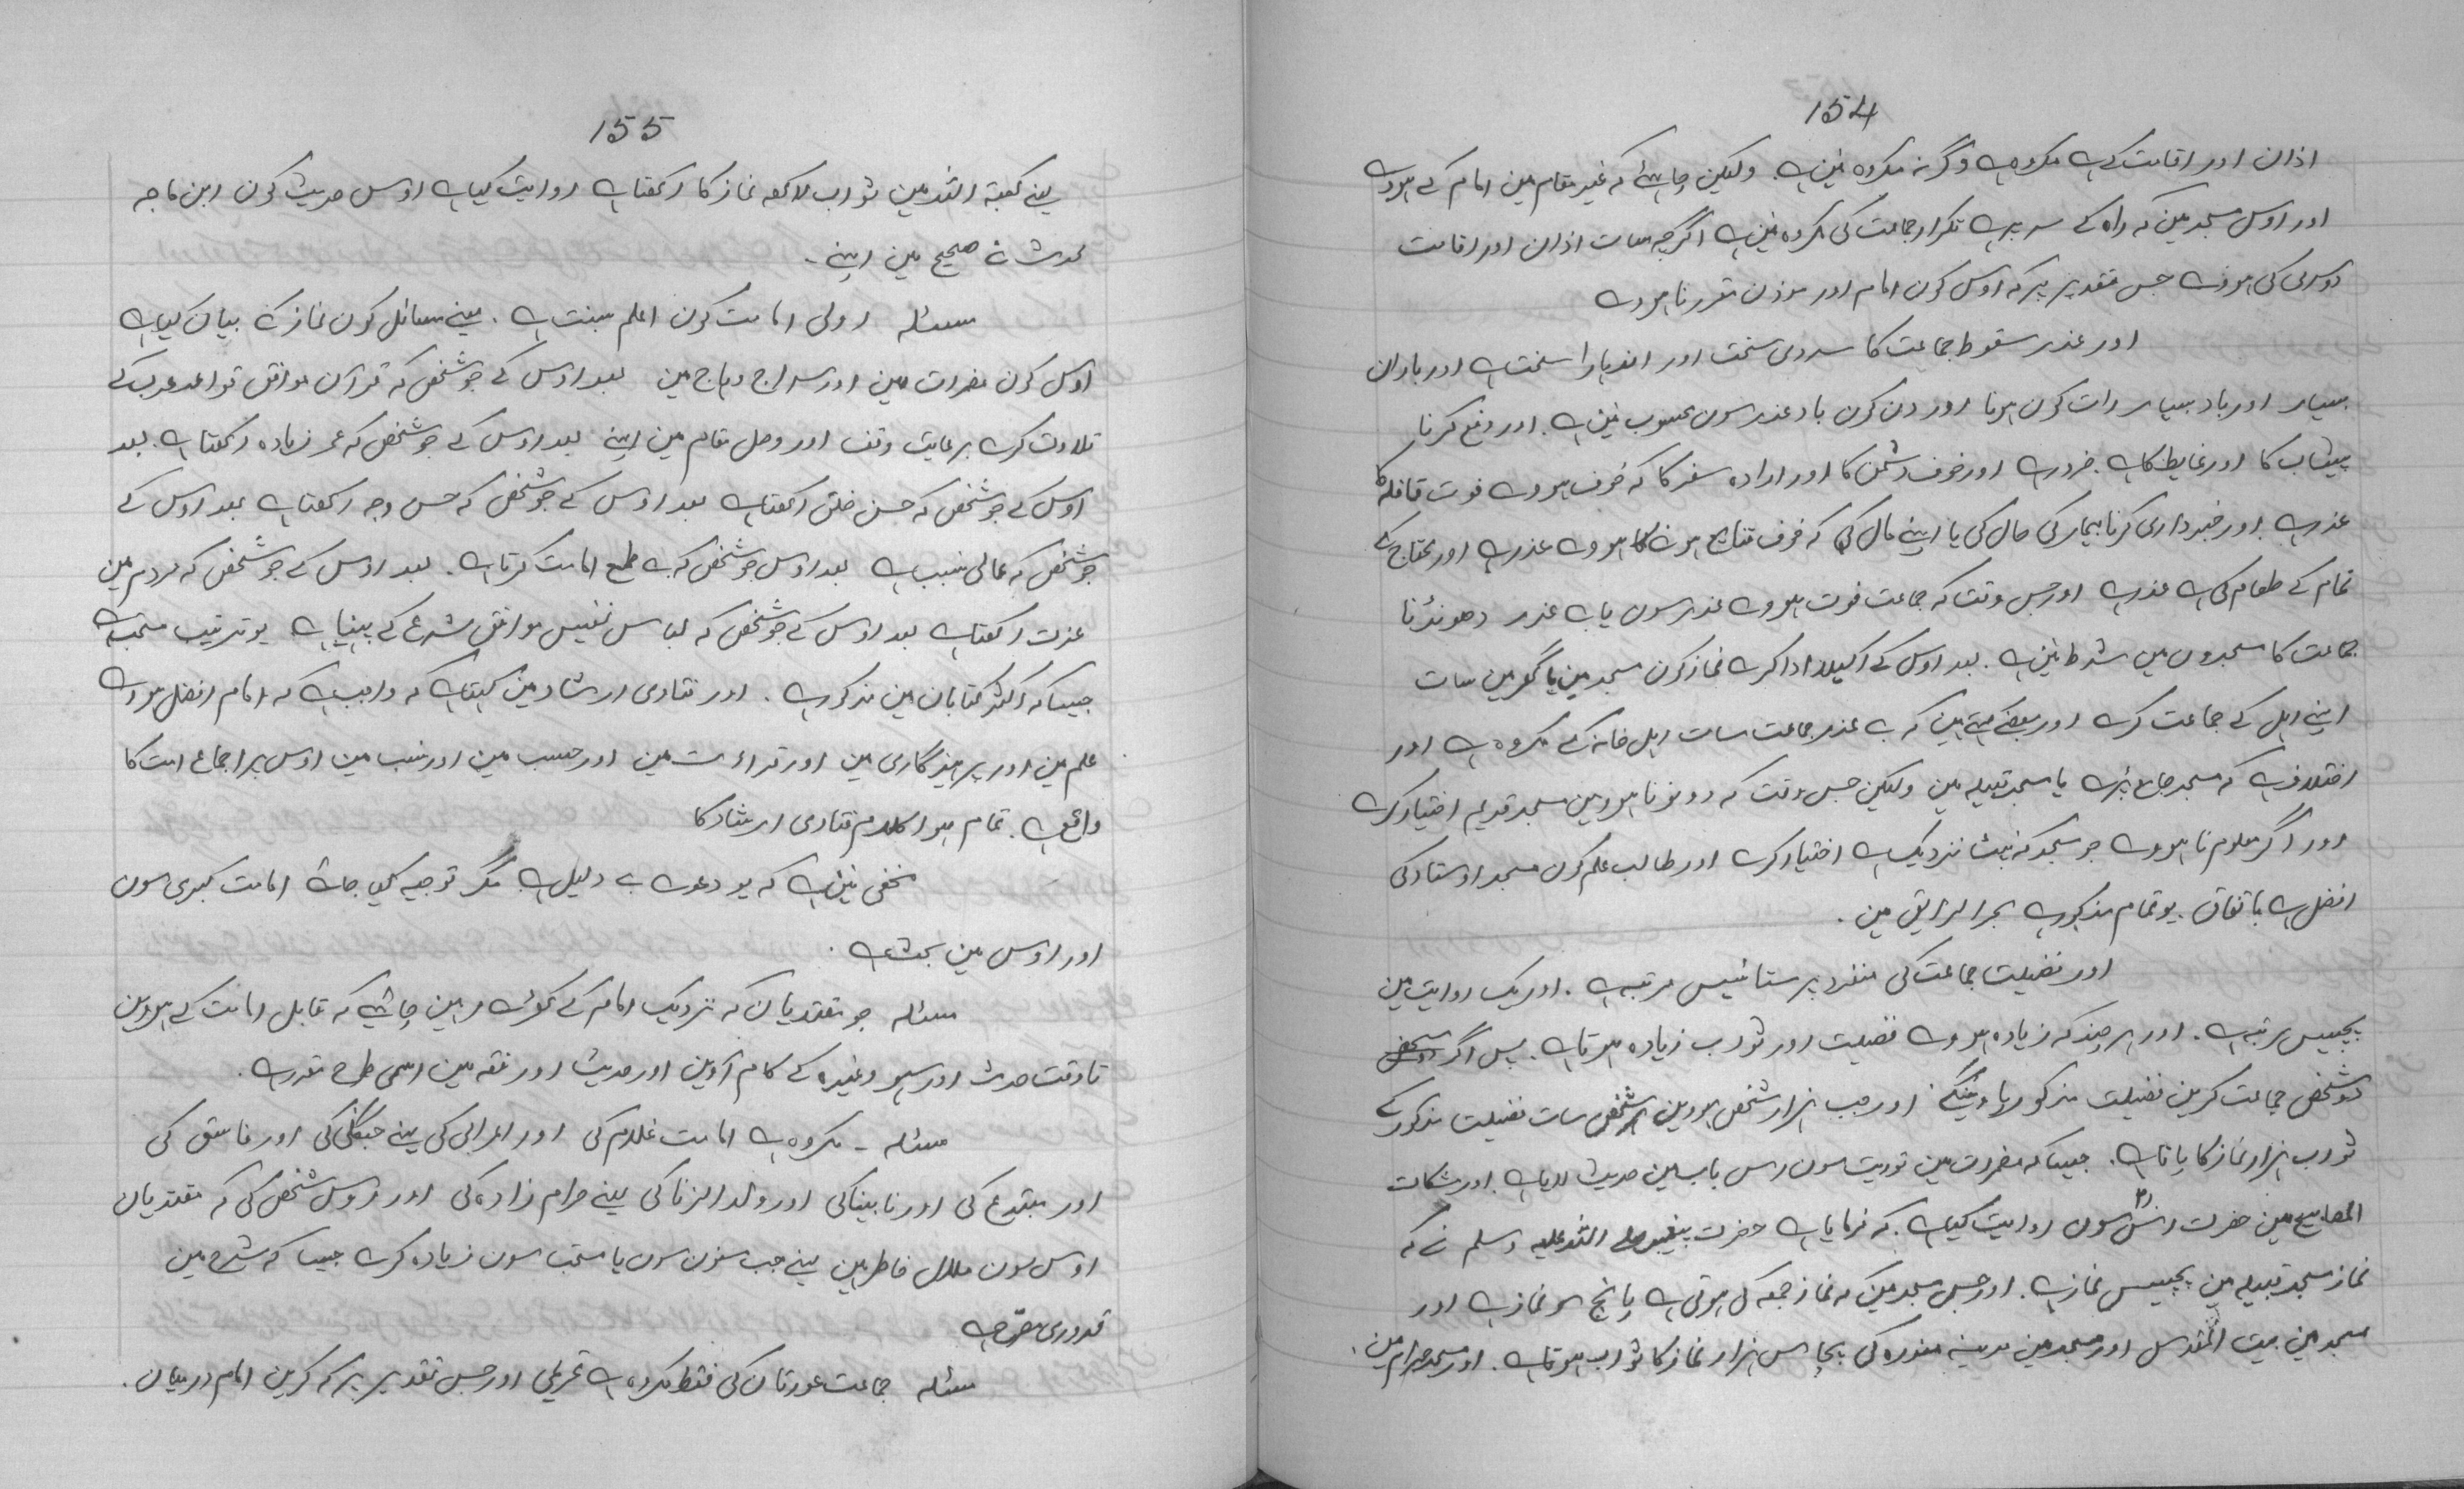 154
اذان اور اقامت کے ہے مکروہ ہے وگرنہ مکروہ نین ہے۔ ولیکن چاہئے کہ غیر مقام مین امام کے ہووے
اور اوس مسجد مین کہ راہ کے سر پر ہے تکرار جماعت کی مکروہ نین ہے اگرچہ سات اذان اور اقامت
دوسری کی ہووے جس تقدیر پر کہ اوس کون امام اور موذن مقرر نا ہووے
اور عذر سقوط جماعت کا سردی سخت اور اندہارا سخت ہے اور باران
بسیار اور باد بسیار رات کون ہونا اور دن کون باد عذر سون محسوب نین ہے۔ اور دفع کرنا
پیشاب کا اور غایط کا ہے ضرور ہے اور خوف دشمن کا اور ارادہ سفر کا کہ خوف ہووے فوت قافلہ کا
عذر ہے اور خبرداری کرنا بیمار کی حال کی یا اپنے مال کی کہ خوف ضایع ہونے کا ہووے عذر ہے اور محتاج کے
تمام کے طعام کی ہے عذر ہے اور جس وقت کہ جماعت فوت ہووے عذر سون یا بے عذر دھونڈنا
جماعت کا مسجدون مین شرط نین ہے۔ بعد اوس کے اکیلا ادا کرے نماز کون مسجد مین یا گھر مین سات
اپنے اہل کے جماعت کرے اور بعضے کہتے ہین کہ بے عذر جماعت سات اہل خانہ کے مکروہ ہے اور
اختلاف ہے کہ مسجد جامع بہتر ہے یا مسجد قبیلہ مین ولیکن جس وقت کہ دونو نا ہووین مسجد قدیم اختیار کرے
اور اگر معلوم نا ہووے جو مسجد کہ نپٹ نزدیک ہے اختیار کرے اور طالب علم کون مسجد اوستاد کی
افضل ہے باتفاق۔ یو تمام مذکور ہے بحر الرایق مین۔
اور فضیلت جماعت کی منفرد پر ستائیس مرتبہ ہے۔ اور یک روایت مین
پچیس مرتبہ ہے۔ اور ہر چند کہ زیادہ ہووے فضیلت اور ثواب زیادہ ہوتا ہے۔ پس اگر
دو شخص جماعت کرین فضیلت مذکور پاوینگے اور جب ہزار شخص ہووین ہر شخص سات فضیلت مذکور کے
ثواب ہزار نماز کا پاتا ہے۔ جیسا کہ مضمرات مین توریت سون اس باب مین حدیث لایا ہے۔ اور مشکات
المصابیح مین حضرت انسؓ سون روایت کیا ہے۔ کہ فرمایا ہے حضرت پیغمبر صلی اللہ علیہ وسلم نے کہ
نماز مسجد قبیلہ مین پچیس نماز ہے۔ اور جس مسجد مین کہ نماز جمعہ کی ہوتی ہے پانچ سو نماز ہے اور
مسجد مین بیت المقدس اور مسجد مین مدینہ منورہ کی پچاس ہزار نماز کا ثواب ہوتا ہے۔ اور مسجد حرام مین،
155
یعنے کعبۃ اللہ مین ثواب لاکھ نماز کا رکھتا ہے روایت کیا ہے اوس حدیث کون ابن ماجہ
محدث نے صحیح مین اپنے۔
مسئلہ اولی امامت کون اعلم سنت ہے۔ یعنے مسائل کون نماز کے بیان کیا ہے
اوس کون مضمرات مین اور سراج وہاج مین بعد اوس کے جو شخص کہ قرآن موافق قواعد عرب کے
تلاوت کرے برعایت وقف اور وصل مقام مین اپنے بعد اوس کے جو شخص کہ عمر زیادہ رکھتا ہے۔ بعد
اوس کے جو شخص کہ حسن خلق رکھتا ہے بعد اوس کے جو شخص کہ حسن وجہ رکھتا ہے بعد اوس کے
جو شخص کہ عالی نسب ہے بعد اوس جو شخص کہ بے طمع امامت کرتا ہے۔ بعد اوس کے جو شخص کہ مردم مین
عزت رکھتا ہے بعد اوس کے جو شخص کہ لباس نفیس موافق شرع کے پہنیا ہے یو ترتیب مستحب ہے
جیسا کہ اکثر کتابان مین مذکور ہے۔ اور فتاوی ارشاد مین کہتا ہے کہ واجب ہے کہ امام افضل ہووے
علم مین اور پرہیزگاری مین اور قراءت مین اور حسب مین اور نسب مین اوس پر اجماع امت کا
واقع ہے۔ تمام ہوا کلام فتاوی ارشاد کا
مخفی نین ہے کہ یو دعوے بے دلیل ہے مگر توجیہ کیا جائے امامت کبری سون
اور اوس مین بحث ہے۔
مسئلہ جو مقتدیان کہ نزدیک امام کے کھڑے رہین چاہئے کہ قابل امامت کے ہووین
تا وقت حدث اور سہو وغیرہ کے کام آوین اور حدیث اور فقہ مین اسی طرح مقرر ہے۔
مسئلہ - مکروہ ہے امامت غلام کی اور اعرابی کی یعنے جنگلی کی اور فاسق کی
اور مبتدع کی اور نابینا کی اور ولد الزنا کی یعنے حرام زادہ کی اور اوس شخص کی کہ مقتدیان
اوس سون ملال خاطر ہین یعنے جب مسنون سون یا مستحب سون زیادہ کرے جیسا کہ شرح مین
قدوری مصرح ہے
مسئلہ جماعت عورتان کی فقط مکروہ ہے تحریمی اور جس تقدیر پر کہ کرین امام درمیان۔